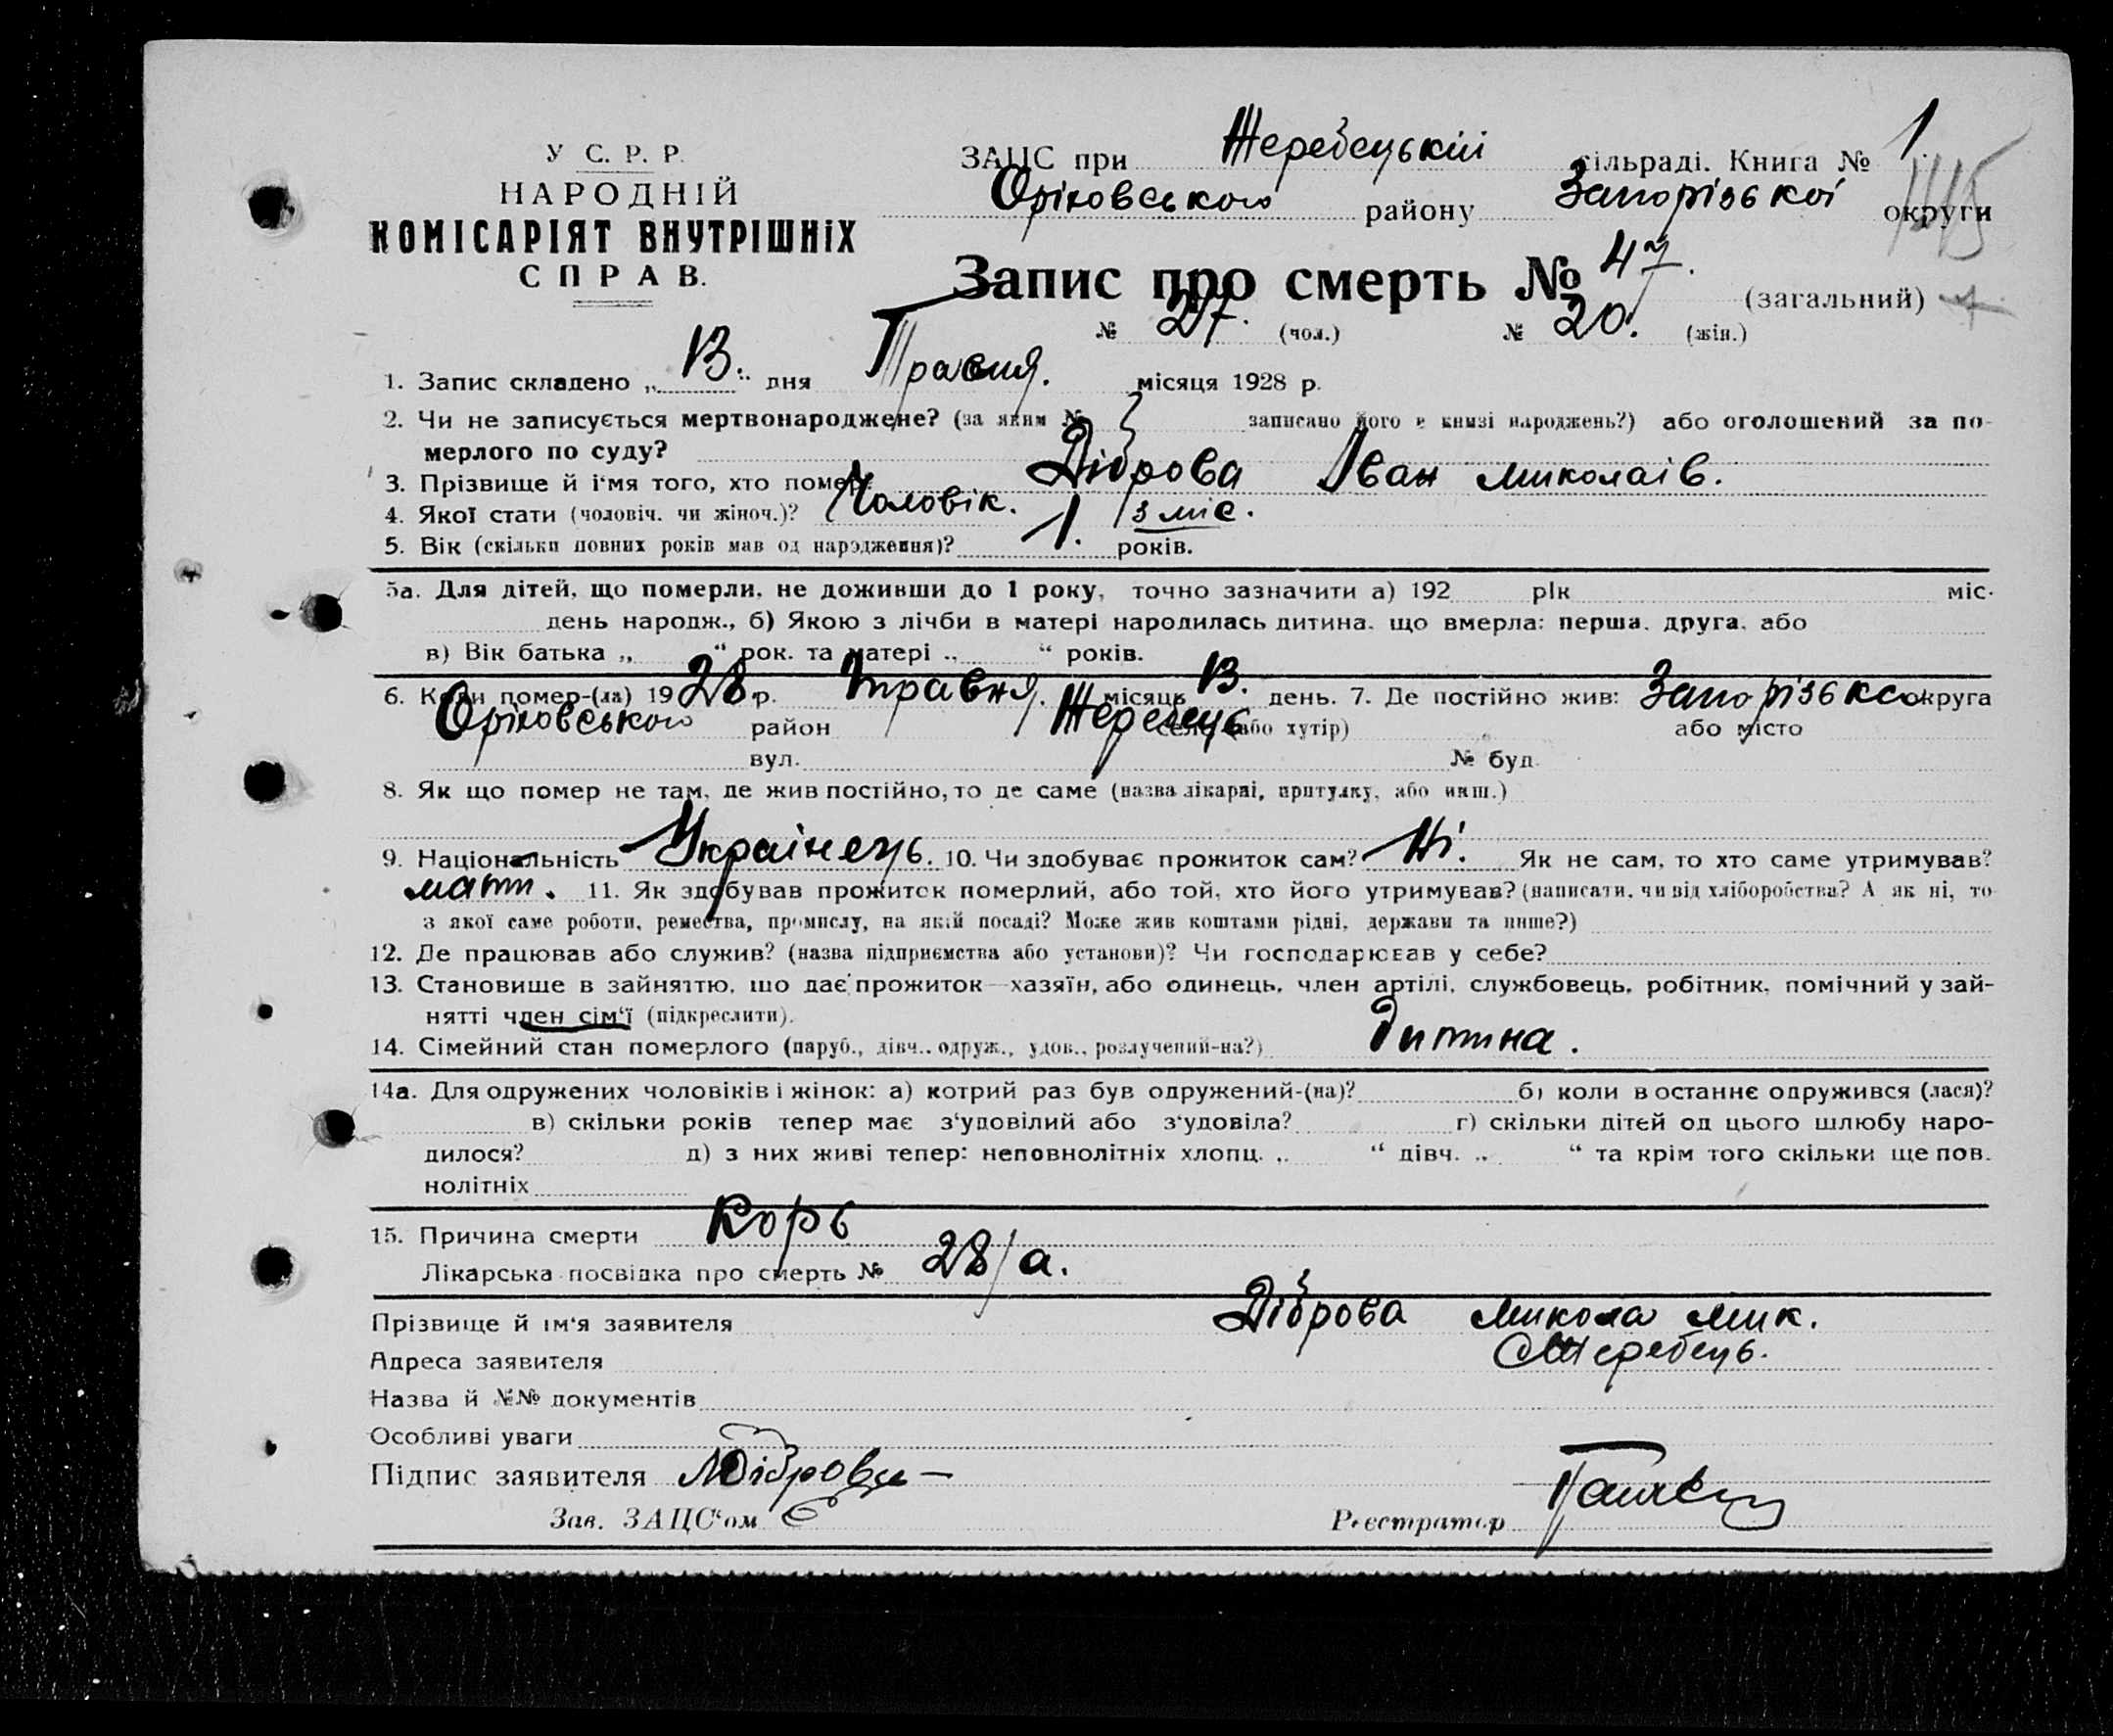 У С. Р. Р.
НАРОДНІЙ
КОМІСАРІЯТ ВНУТРІШНІХ
СПРАВ.
ЗАЦС при Жеребецькій сільраді. Книга № 1.
Оріховського району Запорізької округи
Запис про смерть № 47. (загальний)
№ 27. (чол.) № 20. (жін.)
1. Запис складено „ 13. “ дня Травня. місяця 1928 р.
2. Чи не записується мертвонароджене? (за яким № записано його в книзі народжень?) або оголошений за по-
мерлого по суду?
3. Прізвище й і'мя того, хто помер: Діброва Іван Миколаів.
4. Якої стати (чоловіч. чи жіноч.)? Чоловік.
5. Вік (скільки повних років мав од народження)? 1. 3 міс. років.
5а. Для дітей, що померли, не доживши до 1 року, точно зазначити а) 192 рік міс.
день народж., б) Якою з лічби в матері народилась дитина, що вмерла: перша, друга, або
в) Вік батька „ “ рок. та матері „ “ років.
6. Коли помер-(ла) 1928 р. Травня. місяць 13. день. 7. Де постійно жив: Запорізька округа
Оріховського район Жеребець село (або хутір) або місто
вул. № буд.
8. Як що помер не там, де жив постійно, то де саме (назва лікарні, притулку, або инш.)
9. Національність Українець. 10. Чи здобуває прожиток сам? Ні. Як не сам, то хто саме утримував?
мати. 11. Як здобував прожиток померлий, або той, хто його утримував? (написати, чи від хліборобства? А як ні, то
з якої саме роботи, ремества, промислу, на якій посаді? Може жив коштами рідні, держави та инше?)
12. Де працював або служив? (назва підприємства або установи)? Чи господарював у себе?
13. Становище в зайняттю, що дає прожиток—хазяїн, або одинець, член артілі, службовець, робітник, помічний у зай-
нятті член сім'ї (підкреслити).
14. Сімейний стан померлого (паруб., дівч., одруж., удов., розлучений-на?) Дитина.
14а. Для одружених чоловіків і жінок: а) котрий раз був одружений-(на)? б) коли в останнє одружився (лася)?
в) скільки років тепер має з'удовілий або з'удовіла? г) скільки дітей од цього шлюбу наро-
дилося? д) з них живі тепер: неповнолітніх хлопц. „ “ дівч. „ “ та крім того скільки ще пов.
нолітніх
15. Причина смерти Корь
Лікарська посвідка про смерть № 28/а.
Прізвище й ім'я заявителя Діброва Микола Мик.
Адреса заявителя с Жеребець.
Назва й №№ документів
Особливі уваги
Підпис заявителя МДіброва
Зав. ЗАЦС'ом Реєстратор